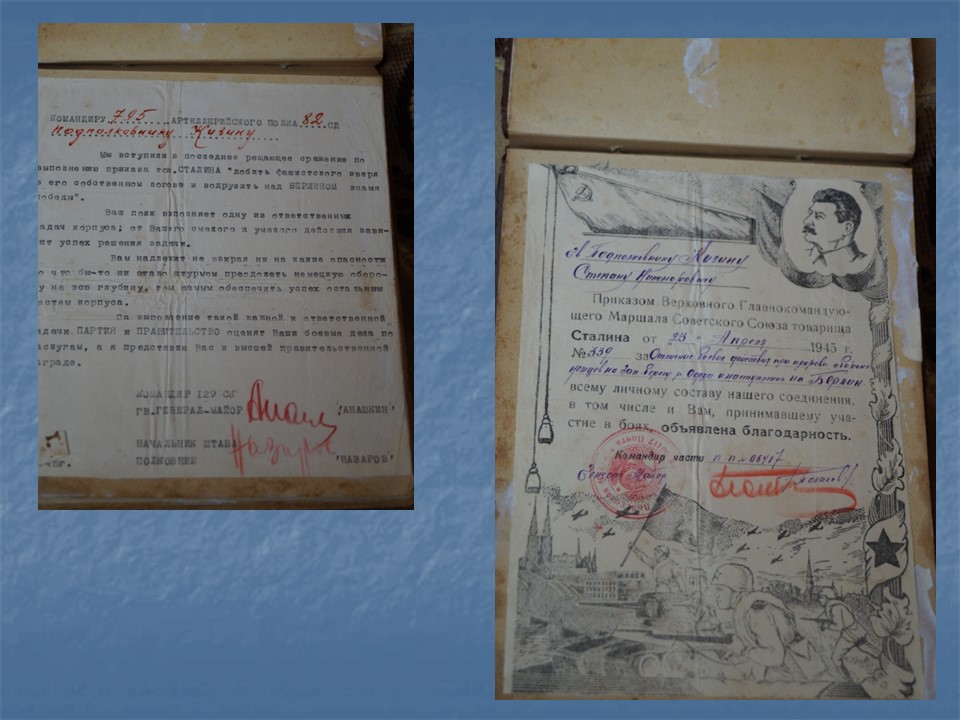 КОМАНДИРУ 795 АРТИЛЛЕРИЙСКОГО ПОЛКА 82 СД
Подполковнику Кизину
Мы вступили в последнее решающее сражение по
выполнению приказа тов.СТАЛИНА "добить фашистского зверя
в его собственном логове и водрузить над БЕРЛИНОМ знамя
победы".
Ваш полк выполняет одну из ответственных
задач корпуса; от Вашего смелого и умелого действия зави-
сит успех решения задачи.
Вам надлежит не взирая ни на какие опасности
во что бы-то ни стало штурмом преодолеть немецкую оборо-
ну на всю глубину, тем самым обеспечить успех остальным
частям корпуса.
За выполнение такой важной и ответственной
задачи ПАРТИЯ и ПРАВИТЕЛЬСТВО оценят Ваши боевые дела по
заслугам, а я представлю Вас к высшей правительственной
награде.
КОМАНДИР 129 СК
ГВ.ГЕНЕРАЛ-МАЙОР /АНАШКИН/
НАЧАЛЬНИК ШТАБА
ПОЛКОВНИК Назаров /НАЗАРОВ/
Подполковнику Кизину
Степану Никаноровичу
Приказом Верховного Главнокомандую-
щего Маршала Советского Союза товарища
Сталина от 23 " Апреля 1945 г.
№ 339 за Отличные боевые действия при прорыве обороны
немцев на зап. берегу р. Одера и наступление на Берлин
всему личному составу нашего соединения,
в том числе и Вам, принимавшему уча-
стие в боях, объявлена благодарность.
Командир части п.п. 06417
Генерал Майор